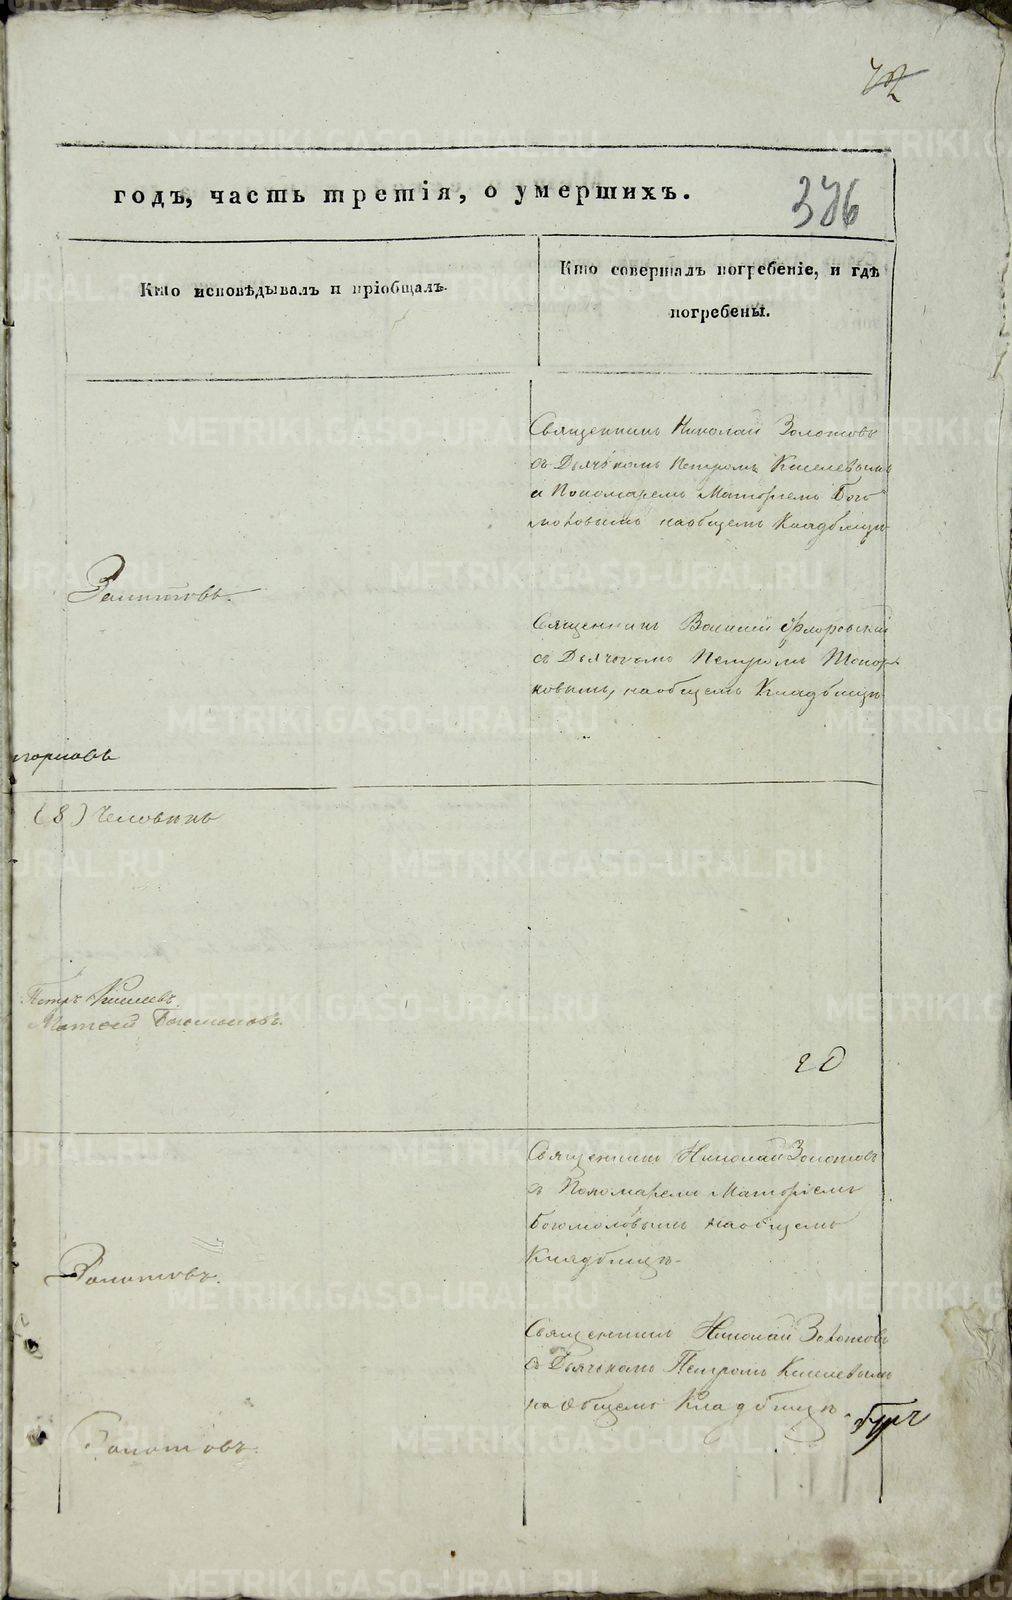 годъ, часть третія, о умершихъ.
376
Кто исповѣдывалъ и пріобщалъ.
Кто совершалъ погребеніе, и гдѣ
погребены.
Священникъ Николай Золотовъ
съ Дьячкомъ Петромъ Киселевымъ
и Пономаремъ Матфіемъ Бого
моловымъ на общемъ Кладбищѣ
Золотовъ.
Священникъ Василій Флоровскій
съ Дьячкомъ Петромъ Топор
ковымъ, на общемъ Кладбищѣ
(8) Человѣкъ
Петръ Киселевъ.
Матфей Богомоловъ.
20
Священникъ Николай Золотовъ
съ Пономаремъ Матфіемъ
Богомоловымъ на общемъ
Кладбищѣ.
Золотовъ.
Священникъ Николай Золотовъ
съ Дьячкомъ Петромъ Киселевымъ
на общемъ Кладбищѣ
Золотовъ.
METRIKI.GASO-URAL.RU